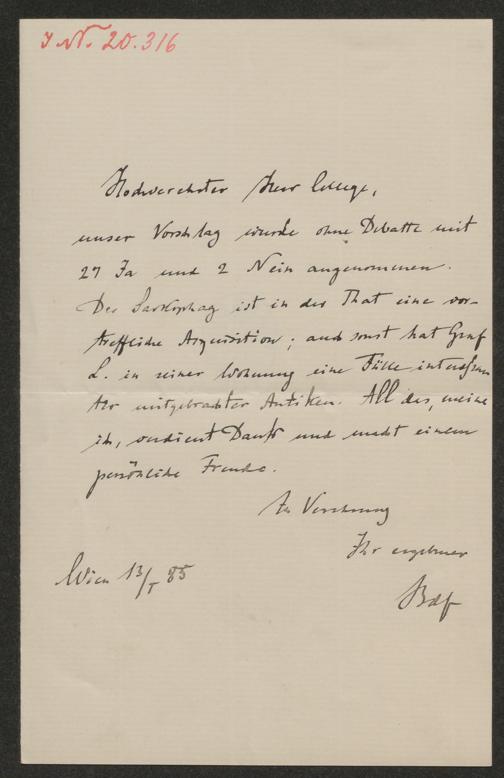 I.N. 20.316
Hochverehrter Herr College,
unser Vorschlag wurde ohne Debatte mit
27 Ja und 2 Nein angenommen.
Der Sarkophag ist in der That eine vor-
treffliche Acquisition; auch sonst hat Graf
L. in seiner Wohnung eine Fülle interessan
ter mitgebrachter Antiken. All das, meine
ich, verdient Dank und macht einem
persönliche Freude.
In Verehrung
Ihr ergebener
Wien 13/I 85
Bdf